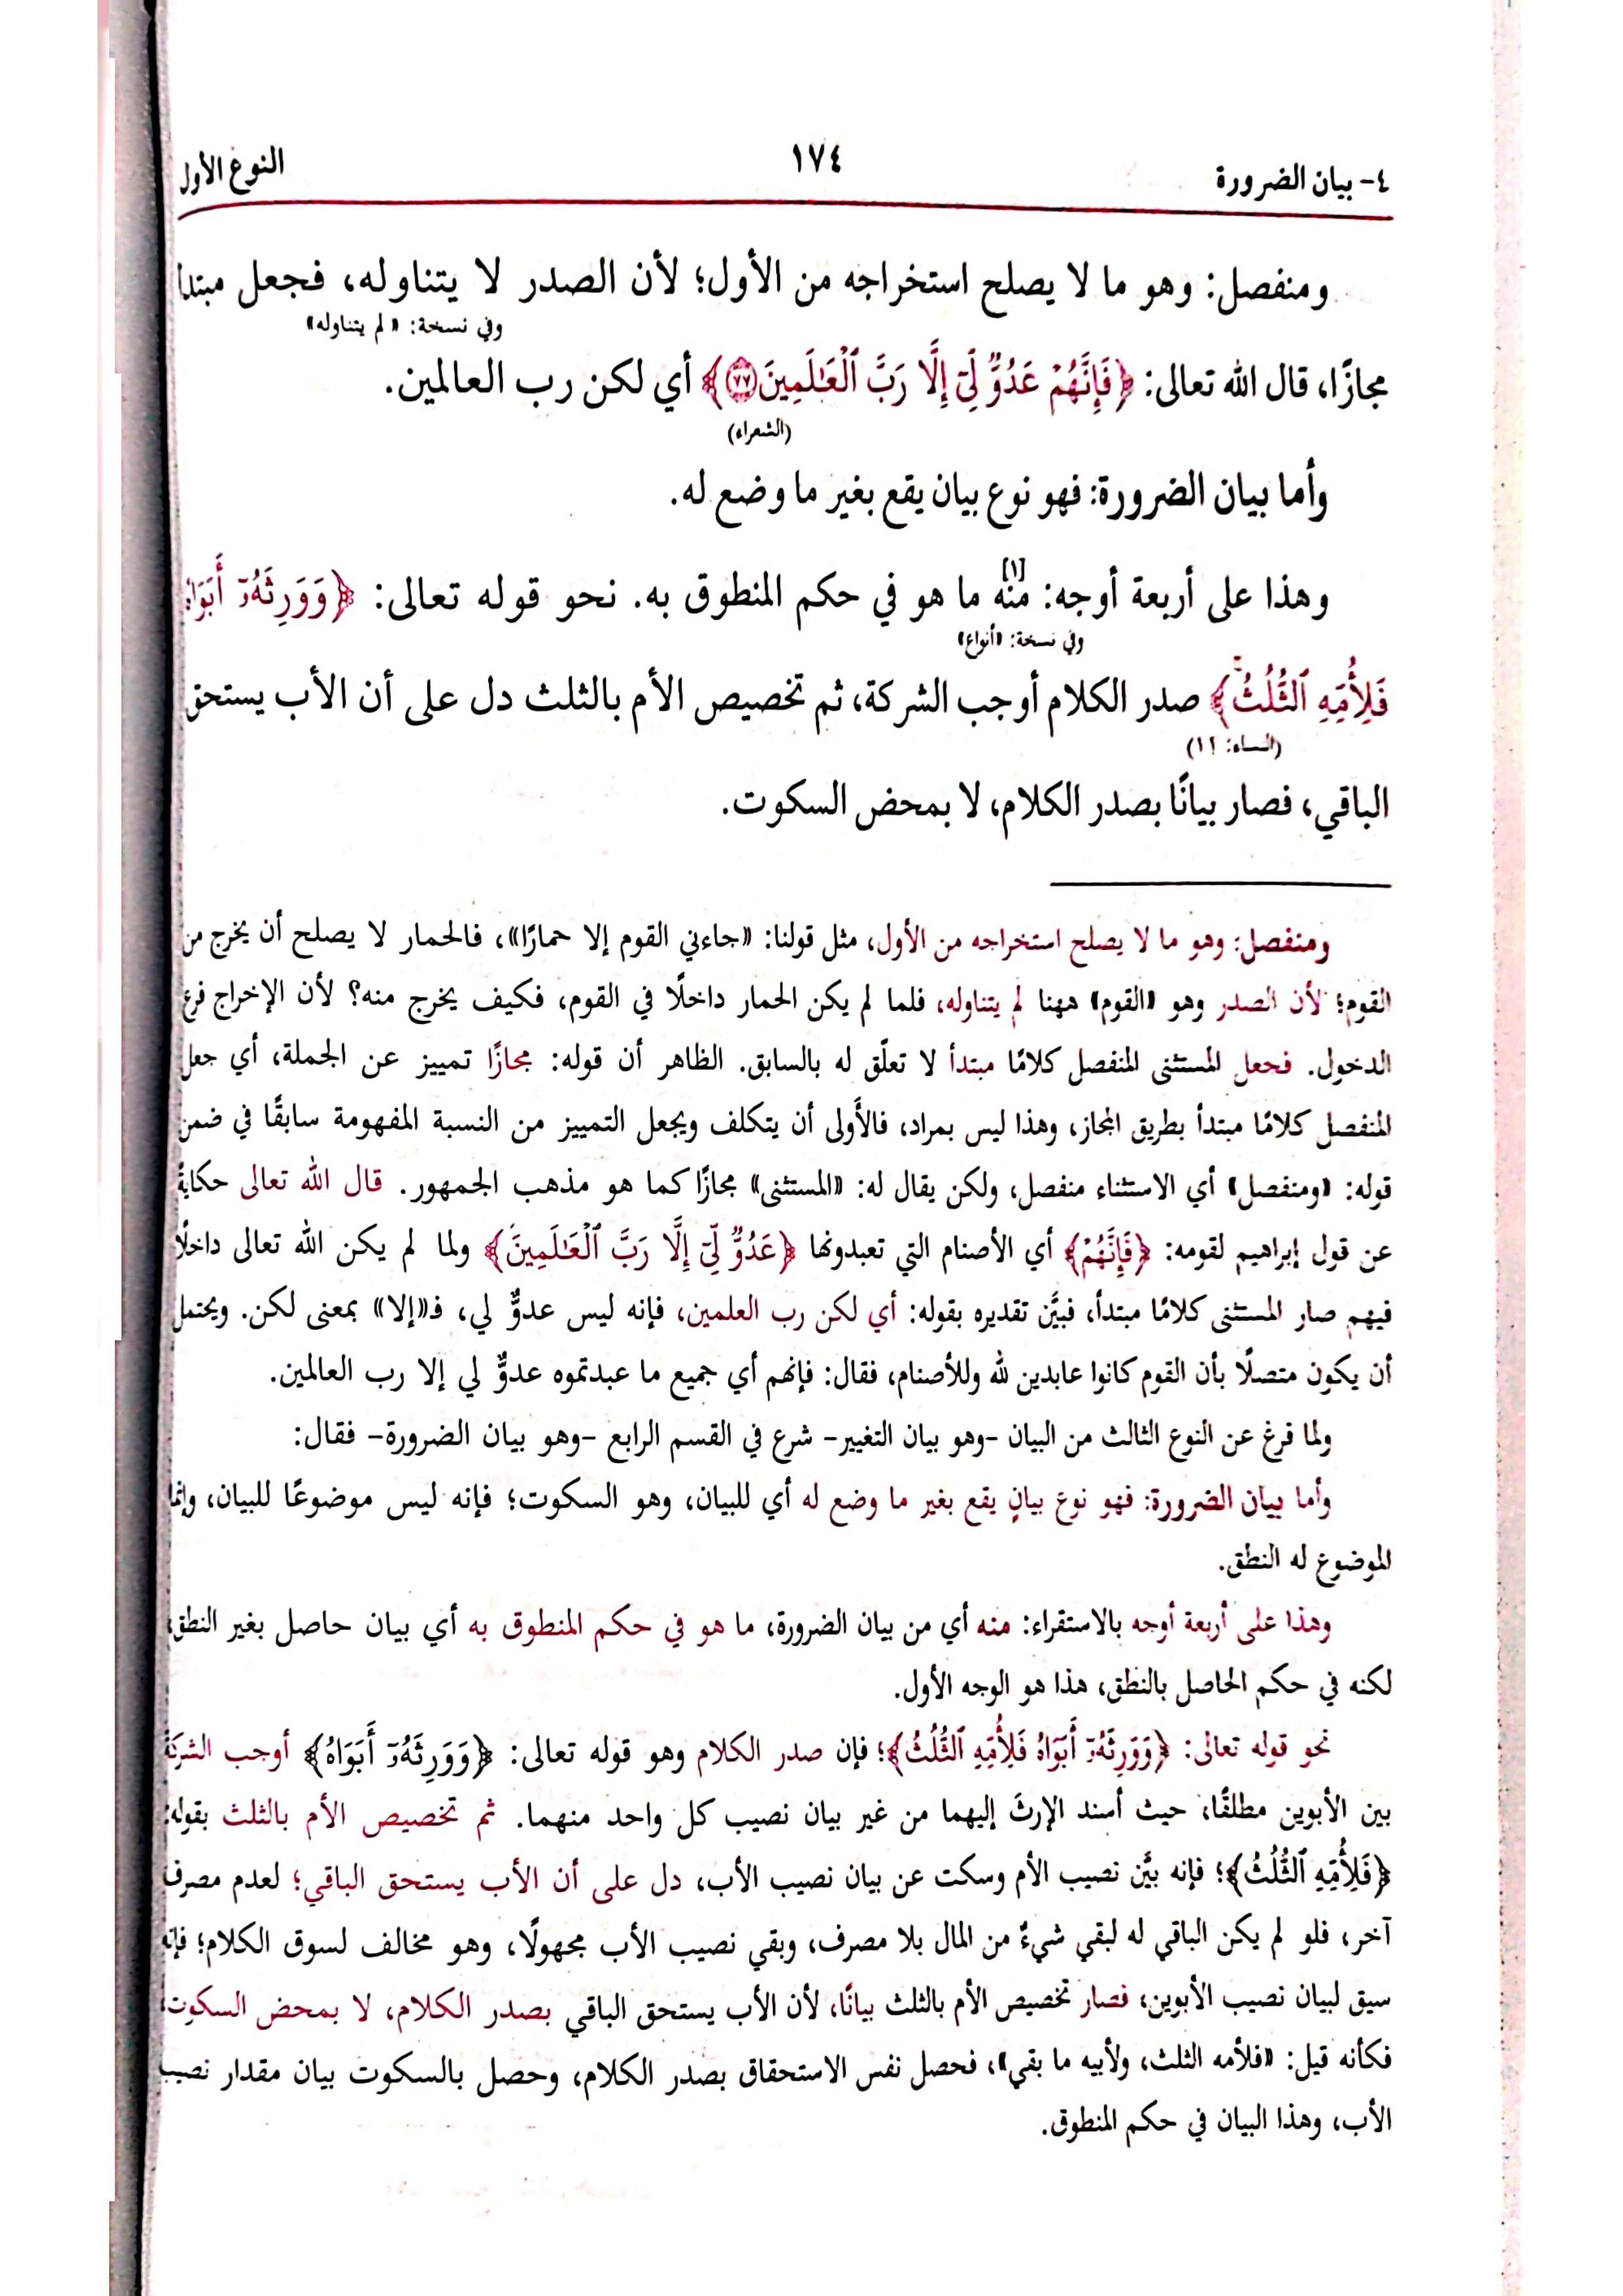 ٤- بيان الضرورة ١٧٤ النوع الأول
ومنفصل: وهو ما لا يصلح استخراجه من الأول؛ لأن الصدر لا يتناوله، فجعل مبتدا
وفي نسخة: «لم يتناوله»
مجازًا، قال الله تعالى: ﴿فَإِنَّهُمۡ عَدُوّٞ لِّيٓ إِلَّا رَبَّ ٱلۡعَٰلَمِينَ ٧٧﴾ أي لكن رب العالمين.
(الشعراء)
وأما بيان الضرورة: فهو نوع بيان يقع بغير ما وضع له.
وهذا على أربعة أوجه: منه[١] ما هو في حكم المنطوق به. نحو قوله تعالى: ﴿وَوَرِثَهُۥٓ أَبَوَاهُ
وفي نسخة: «أنواع»
فَلِأُمِّهِ ٱلثُّلُثُۚ﴾ صدر الكلام أوجب الشركة، ثم تخصيص الأم بالثلث دل على أن الأب يستحق
(النساء: ١١)
الباقي، فصار بيانًا بصدر الكلام، لا بمحض السكوت.
ومنفصل: وهو ما لا يصلح استخراجه من الأول، مثل قولنا: «جاءني القوم إلا حمارًا»، فالحمار لا يصلح أن يخرج من
القوم؛ لأن الصدر وهو «القوم» ههنا لم يتناوله، فلما لم يكن الحمار داخلًا في القوم، فكيف يخرج منه؟ لأن الإخراج فرع
الدخول. فجعل المستثنى المنفصل كلامًا مبتدأ لا تعلّق له بالسابق. الظاهر أن قوله: مجازًا تمييز عن الجملة، أي جعل
المنفصل كلامًا مبتدأ بطريق المجاز، وهذا ليس بمراد، فالأَولى أن يتكلف ويجعل التمييز من النسبة المفهومة سابقًا في ضمن
قوله: «ومنفصل» أي الاستثناء منفصل، ولكن يقال له: «المستثنى» مجازًا كما هو مذهب الجمهور. قال الله تعالى حكايةً
عن قول إبراهيم لقومه: ﴿فَإِنَّهُمۡ﴾ أي الأصنام التي تعبدونها ﴿عَدُوّٞ لِّيٓ إِلَّا رَبَّ ٱلۡعَٰلَمِينَ﴾ ولما لم يكن الله تعالى داخلًا
فيهم صار المستثنى كلامًا مبتدأ، فبيَّن تقديره بقوله: أي لكن رب العلمين، فإنه ليس عدوٌّ لي، فـ«إلا» بمعنى لكن. ويحتمل
أن يكون متصلًا بأن القوم كانوا عابدين لله وللأصنام، فقال: فإنهم أي جميع ما عبدتموه عدوٌّ لي إلا رب العالمين.
ولما فرغ عن النوع الثالث من البيان –وهو بيان التغيير– شرع في القسم الرابع –وهو بيان الضرورة– فقال:
وأما بيان الضرورة: فهو نوع بيانٍ يقع بغير ما وضع له أي للبيان، وهو السكوت؛ فإنه ليس موضوعًا للبيان، وإنما
الموضوع له النطق.
وهذا على أربعة أوجه بالاستقراء: منه أي من بيان الضرورة، ما هو في حكم المنطوق به أي بيان حاصل بغير النطق،
لكنه في حكم الحاصل بالنطق، هذا هو الوجه الأول.
نحو قوله تعالى: ﴿وَوَرِثَهُۥٓ أَبَوَاهُ فَلِأُمِّهِ ٱلثُّلُثُ﴾؛ فإن صدر الكلام وهو قوله تعالى: ﴿وَوَرِثَهُۥٓ أَبَوَاهُ﴾ أوجب الشركة
بين الأبوين مطلقًا، حيث أسند الإرثَ إليهما من غير بيان نصيب كل واحد منهما. ثم تخصيص الأم بالثلث بقوله:
﴿فَلِأُمِّهِ ٱلثُّلُثُ﴾؛ فإنه بيَّن نصيب الأم وسكت عن بيان نصيب الأب، دل على أن الأب يستحق الباقي؛ لعدم مصرف
آخر، فلو لم يكن الباقي له لبقي شيءٌ من المال بلا مصرف، وبقي نصيب الأب مجهولًا، وهو مخالف لسوق الكلام؛ فإنه
سيق لبيان نصيب الأبوين، فصار تخصيص الأم بالثلث بيانًا، لأن الأب يستحق الباقي بصدر الكلام، لا بمحض السكوت،
فكأنه قيل: «فلأمه الثلث، ولأبيه ما بقي»، فحصل نفس الاستحقاق بصدر الكلام، وحصل بالسكوت بيان مقدار نصيب
الأب، وهذا البيان في حكم المنطوق.